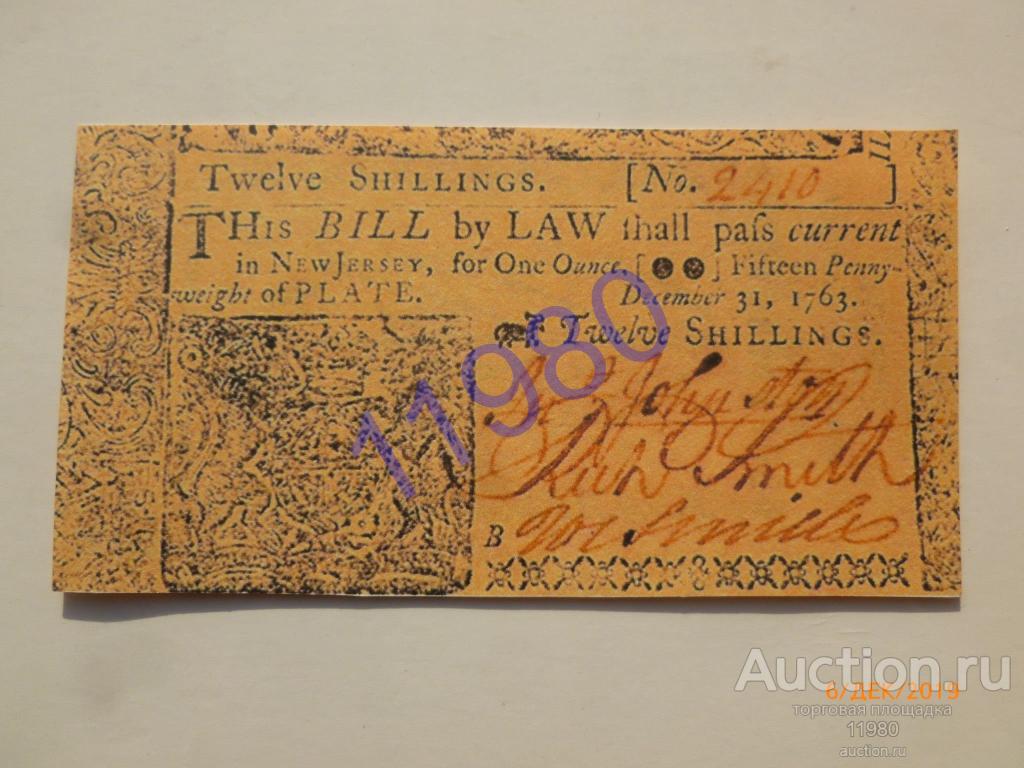 Twelve SHILLINGS. [No. 2410 ]
THis BILL by LAW ſhall paſs current
in NEW JERSEY, for One Ounce [ ] Fifteen Penny-
weight of PLATE. December 31, 1763.
Twelve SHILLINGS.
Johnston
Smith
B
Smith
11980
Auction.ru
6/ДЕК/2019
торговая площадка
11980
auction.ru